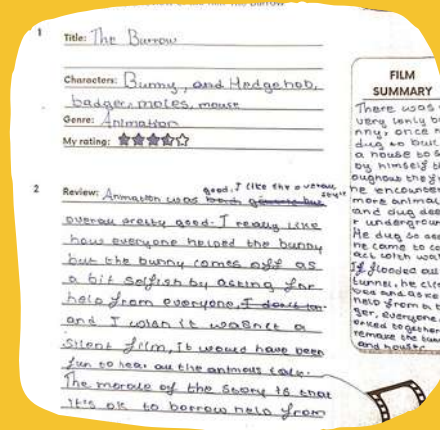 1
Title: The Burrow
Characters: Bunny, and Hedgehob,
badger, moles, mouse
Genre: Animation
My rating:
2
good. I like the overall style
Review: Animation was
overall pretty good. I really like
how everyone helped the bunny
but the bunny comes off as
a bit selfish by acting for
help from everyone,
and I wish it wasn't a
silent film, It would have been
fun to hear all the animals talk.
The morale of the Story is that
it's ok to borrow help from
FILM
SUMMARY
There was
very lonly bu
nny, once n
dug to buil
a house to s
by himself t
oughout the f
he encounter
more animal
and dug dee
r undergroun
He dug so dee
he came to co
act with wat
It flooded all
tunnel, he cli
help from
ger, everyone
orked together
remake the tunn
and house